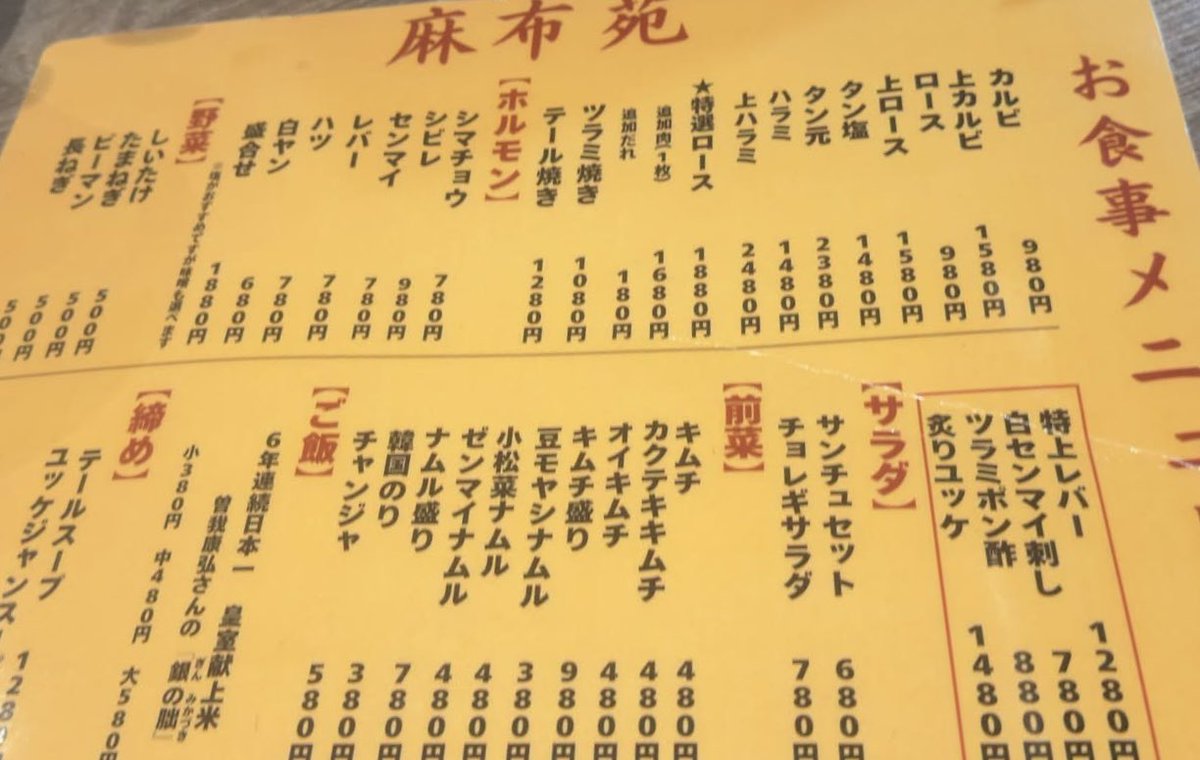 麻布苑
お食事メニュー
カルビ 980円
上カルビ 1580円
ロース 980円
上ロース 1580円
タン塩 1480円
タン元 2380円
ハラミ 1480円
上ハラミ 2480円
★特選ロース 1880円
追加肉(1枚) 1680円
追加だれ 180円
ツラミ焼き 1080円
テール焼き 1280円
【ホルモン】
シマチョウ 780円
シビレ 980円
センマイ 780円
レバー 780円
ハツ 780円
白ヤン 680円
盛合せ 1880円
【野菜】
※塩がおすすめですが味噌も選べます
しいたけ 500円
たまねぎ 500円
ピーマン 500円
長ねぎ 500円
特上レバー 1280円
白センマイ刺し 780円
ツラミポン酢 880円
炙りユッケ 1480円
【サラダ】
サンチュセット 680円
チョレギサラダ 780円
【前菜】
キムチ 480円
カクテキキムチ 480円
オイキムチ 480円
キムチ盛り 980円
豆モヤシナムル 380円
小松菜ナムル 480円
ゼンマイナムル 480円
ナムル盛り 780円
韓国のり 380円
チャンジャ 580円
【ご飯】
6年連続日本一 皇室献上米
曽我康弘さんの「銀の朏」
ぎん みかづき
小380円 中480円 大580円
【締め】
テールスープ
ユッケジャンス